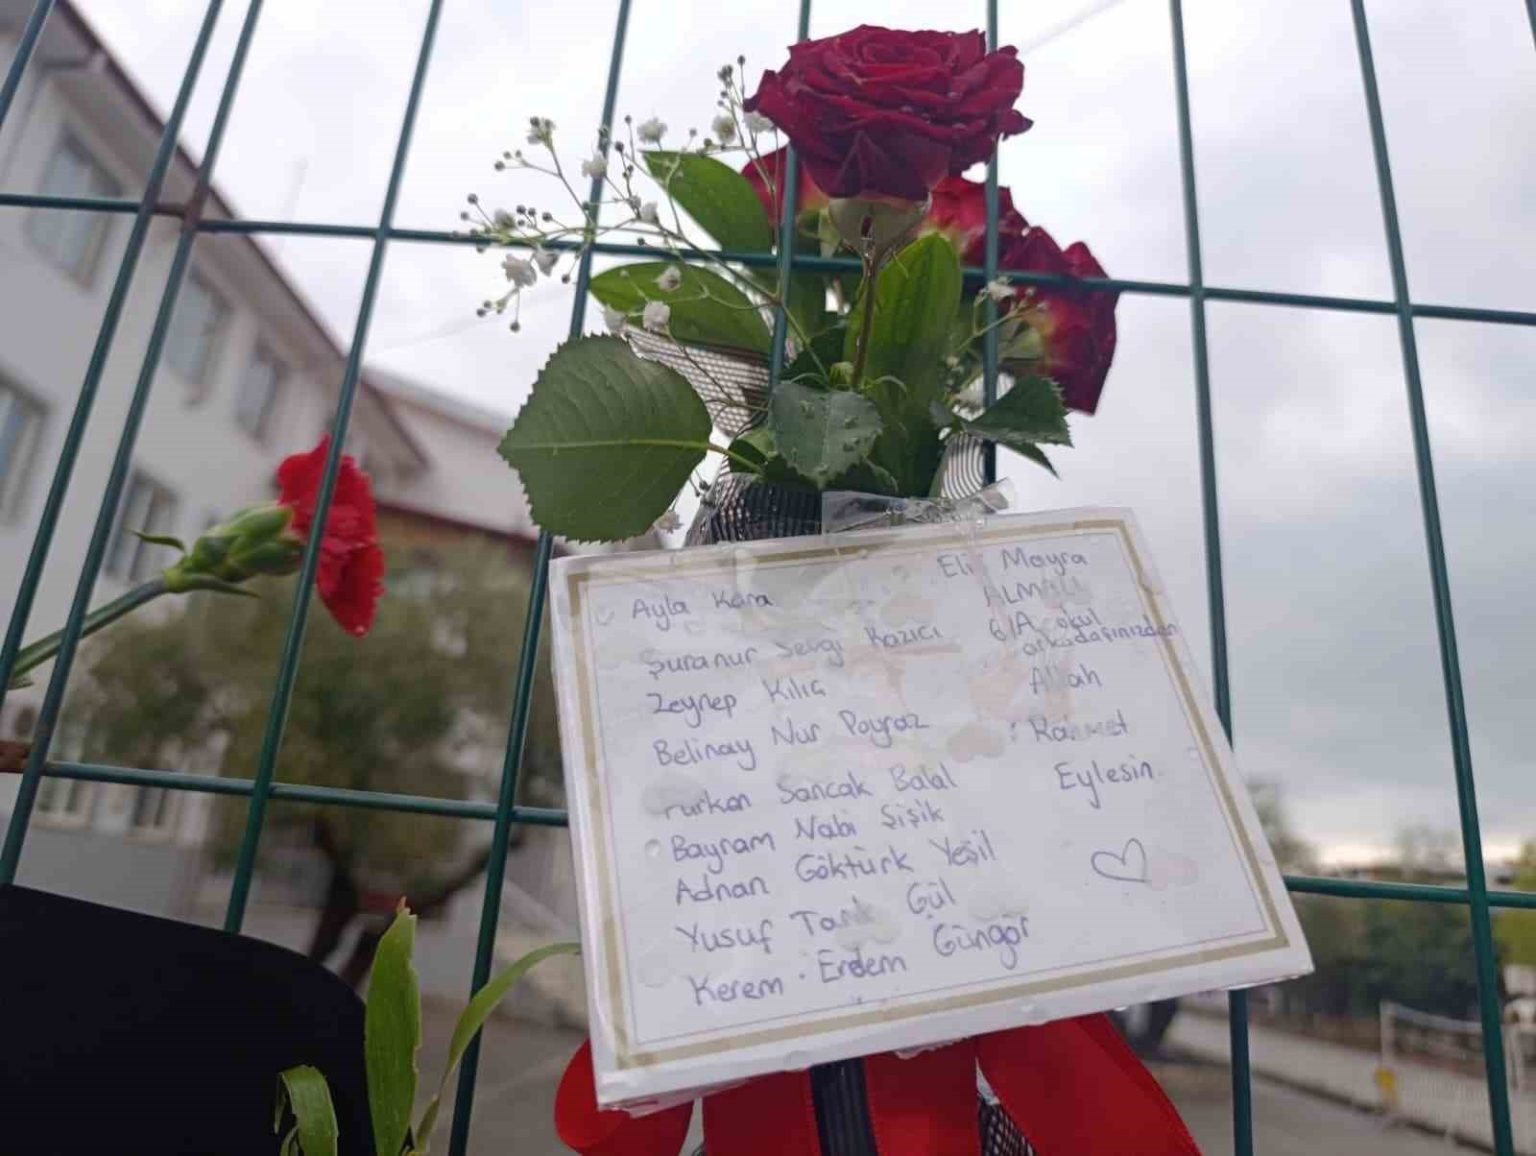 Ayla Kara
Şuranur Sevgi Kazıcı
Zeynep Kılıç
Belinay Nur Poyraz
Sancak Balal
Bayram Nabi Şişik
Adnan Göktürk Yeşil
Yusuf Gül
Kerem Erdem Güngör
Mayra
6/A okul
arkadaşınızdan
Allah
Rahmet
Eylesin